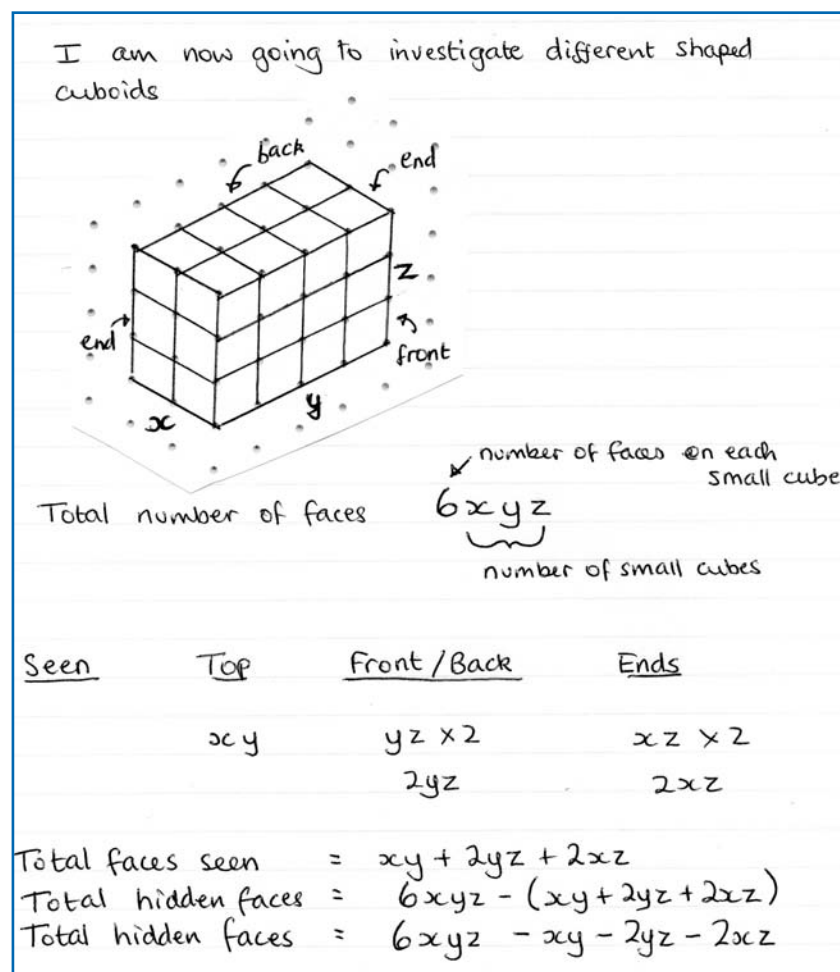 I am now going to investigate different shaped
cuboids
back
end
z
end
front
x
y
number of faces on each
small cube
Total number of faces 6xyz
number of small cubes
Seen Top Front/Back Ends
xy yz x2 xz x2
2yz 2xz
Total faces seen = xy + 2yz + 2xz
Total hidden faces = 6xyz - (xy + 2yz + 2xz)
Total hidden faces = 6xyz - xy - 2yz - 2xz